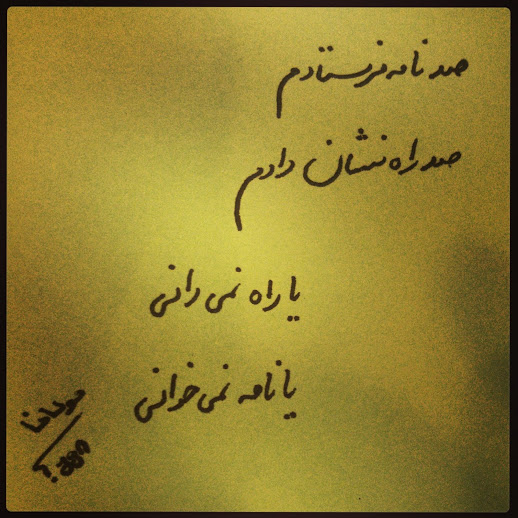 صد نامه فرستادم
صد راه نشان دادم
یا راه نمی رانی
یا نامه نمی خوانی
مولانا